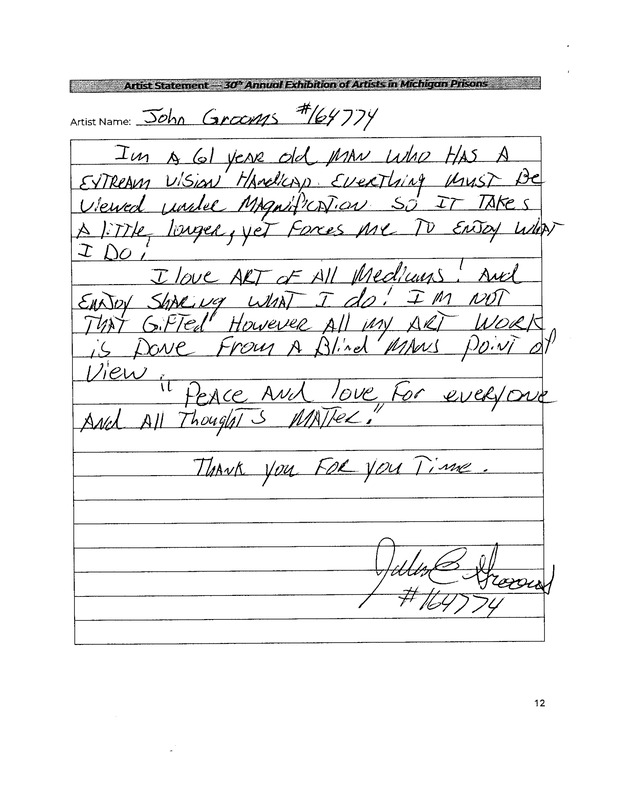 Artist Statement — 30th Annual Exhibition of Artists in Michigan Prisons
Artist Name: John Grooms #164774
Im A 61 year old MAN WHO HAS A
EXTREAM VISION HANdicAp. EVErtHING MUST BE
Viewed under MAgNificATION. SO IT TAKEs
A little longer, yet Forces me TO ENJOY WHAT
I DO!
I love ART OF All Mediums! And
ENJOY SHAring WHAT I do! IM NOT
THAT GiFTed However All my ART WORK
is DONE From A Blind MANs point of
View.
"PeAce And love For everyone
And All ThoughtS MATTer."
THANK you FOR you Time.
John C Grooms
#164774
12